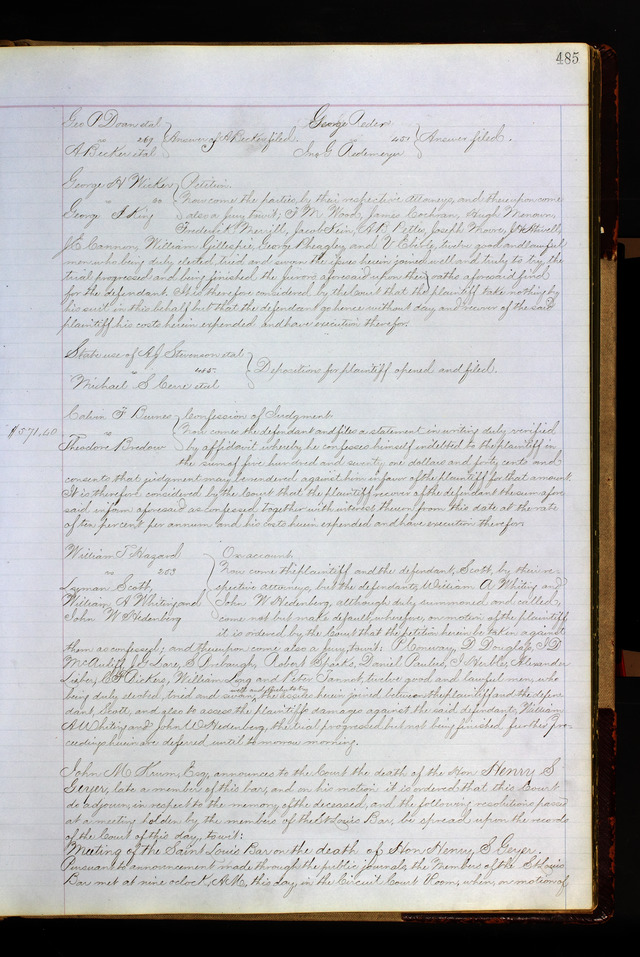 485
Geo P Doan et al } George Reder
vs 269 } Answer of A Becker filed. vs 451 } Answer filed.
A Becker et al } Jno G Redemeyer
George H Wicker } Petition.
vs 80 } Now come the parties, by their respective attorneys, and thereupon come
George I King } also a jury, to wit; J M Wood, James Cochran, Hugh Menown,
Frederick Merrill, Jacob Fein, A B Pettes, Joseph Moore,
J E Cannon, William Gillespie, George Rheagley and V Eberly, twelve good and lawful
men who being duly elected, tried and sworn the issues herein joined well and truly to try, the
trial progressed and being finished the jurors aforesaid upon their oaths aforesaid find
for the defendant. It is therefore considered by the Court that the plaintiff take nothing by
his suit in this behalf but that the defendant go hence without day and recover of the said
plaintiff his costs herein expended and have execution therefor.
State use of R J Stevenson et al }
vs 415 } Depositions for plaintiff opened and filed.
Michael S Cerre et al }
Calvin F Burnes } Confession of Judgment.
$571,40 vs } Now comes the defendant and files a statement in writing duly verified
Theodore Bredow } by affidavit whereby he confesses himself indebted to the plaintiff in
the sum of five hundred and seventy one dollars and forty cents and
consents that judgment may be rendered against him in favor of the plaintiff for that amount.
It is therefore considered by the Court that the plaintiff recover of the defendant the sum afore
said in form aforesaid as confessed together with interest thereon from this date at the rate
of ten per cent per annum and his costs herein expended and have execution therefor
William T Hazard } On account.
vs 203 } Now come the plaintiff and the defendant, Scott, by their re-
Lyman Scott, } spective attorneys, but the defendants, William A Whiting and
William A Whiting and } John W Hedenberg, although duly summoned and called,
John W Hedenberg } come not but make default, wherefore, on motion of the plaintiff
it is ordered by the Court that the petition herein be taken against
them as confessed; and thereupon come also a jury, to wit: P Conway, D Douglass, J D
McAuliff, J G Lare, S Purbaugh, Robert Sparks, Daniel Paulus, J Neible, Alexander
Lisher, C F Pickers, William Long and Peter Sannot, twelve good and lawful men, who
being duly elected, tried and sworn well and truly to try the issues herein joined between the plaintiff and the defen-
dant, Scott, and also to assess the plaintiff damages against the said defendants, William
A Whiting and John W Hedenberg, the trial progressed but not being finished further pro-
ceedings herein are deferred until to morrow morning.
John M Krum, Esq, announces to the Court the death of the Hon Henry S
Geyer, late a member of this bar, and on his motion it is ordered that this Court
do adjourn, in respect to the memory of the deceased, and the following resolutions passed
at a meeting holden by the members of the St Louis Bar, be spread upon the records
of the Court of this day, to wit:
Meeting of the Saint Louis Bar on the death of Hon Henry S Geyer.
Pursuant to announcement made through the public journals, the Members of the St Louis
Bar met at nine oclock, A.M, this day, in the Circuit Court Room, when, on motion of